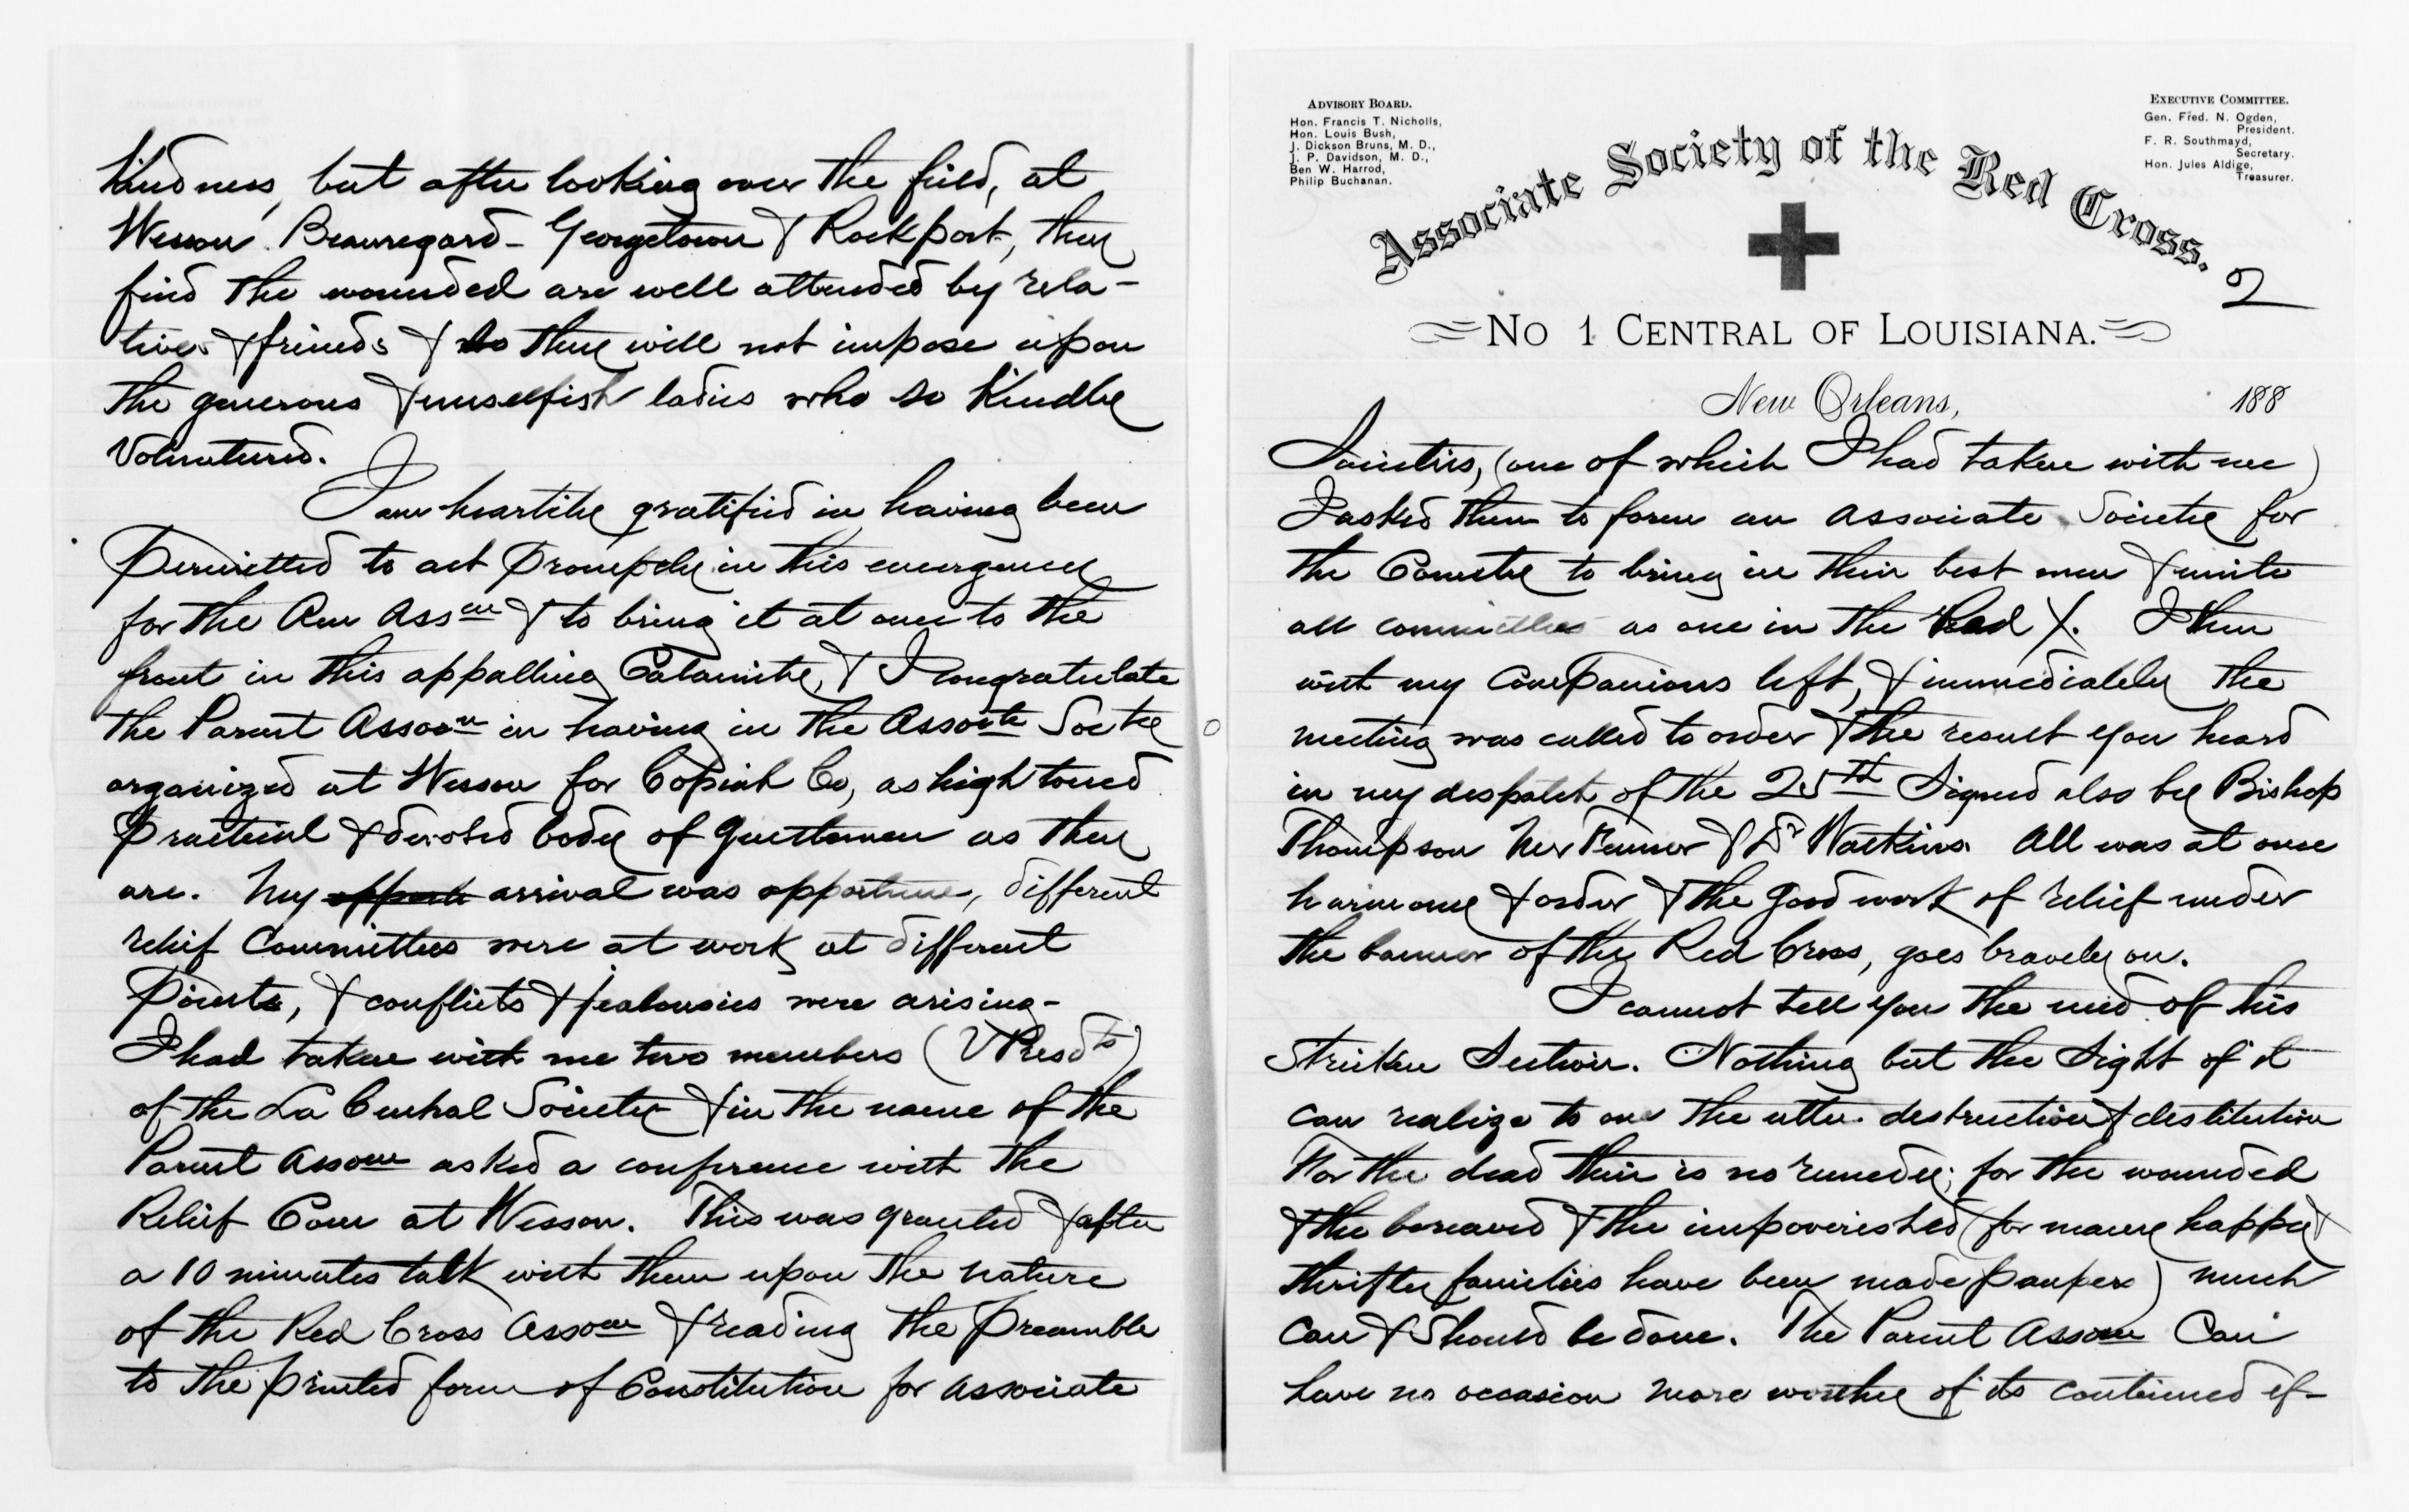 Kindness, but after looking over the field, at
Wesson. Beauregard - Georgetown & Rockport, they
find the wounded are well attended by rela-
tives & friends & so they will not impose upon
the generous & unselfish ladies who so Kindly
Volunteered.
I am heartily gratified in having been
permitted to act promptly in this emergency
for the Am Assn & to bring it at once to the
front in this appalling Calamity, & I congratulate
the Parent Assocn in having in the Assocte Socty
organized at Wesson for Copiah Co, as high toned
practical & devoted body of gentlemen as they
are. My arrival was opportune, different
relief Committees were at work at different
points, & conflicts & jealousies were arising-
I had taken with me two members (V Presdts)
of the La Central Society & in the name of the
Parent Assocn asked a conference with the
Relief Com at Wesson. This was granted & after
a 10 minutes talk with them upon the nature
of the Red Cross Assocn & reading the Preamble
to the printed form of Constitution for associate
ADVISORY BOARD.
Hon. Francis T. Nicholls,
Hon. Louis Bush,
J. Dickson Bruns, M. D.,
J. P. Davidson, M. D.,
Ben W. Harrod,
Philip Buchanan.
EXECUTIVE COMMITTEE.
Gen. Fred. N. Ogden,
President.
F. R. Southmayd,
Secretary.
Hon. Jules Aldige,
Treasurer.
Associate Society of the Red Cross.
2
No 1 CENTRAL OF LOUISIANA.
New Orleans, 188
Societies, (one of which I had taken with me)
I asked them to form an Associate Society for
the County to bring in their best men & unite
all committees as one in the Red X. I then
with my companions left, & immediately the
meeting was called to order & the result you heard
in my despatch of the 25th Signed also by Bishop
Thompson & Dr Watkins. All was at once
harmony & order & the good work of relief under
the banner of the Red Cross, goes bravely on.
I cannot tell you the need of this
Stricken Section. Nothing but the Sight of it
can realize to one the utter destruction & destitution
For the dead their is no remedy; for the wounded
& the bereaved & the impoverished (for many happy &
thrifty families have been made paupers) much
Can & Should be done. The Parent Assocn Can
have no occasion more worthy of its continued ef-